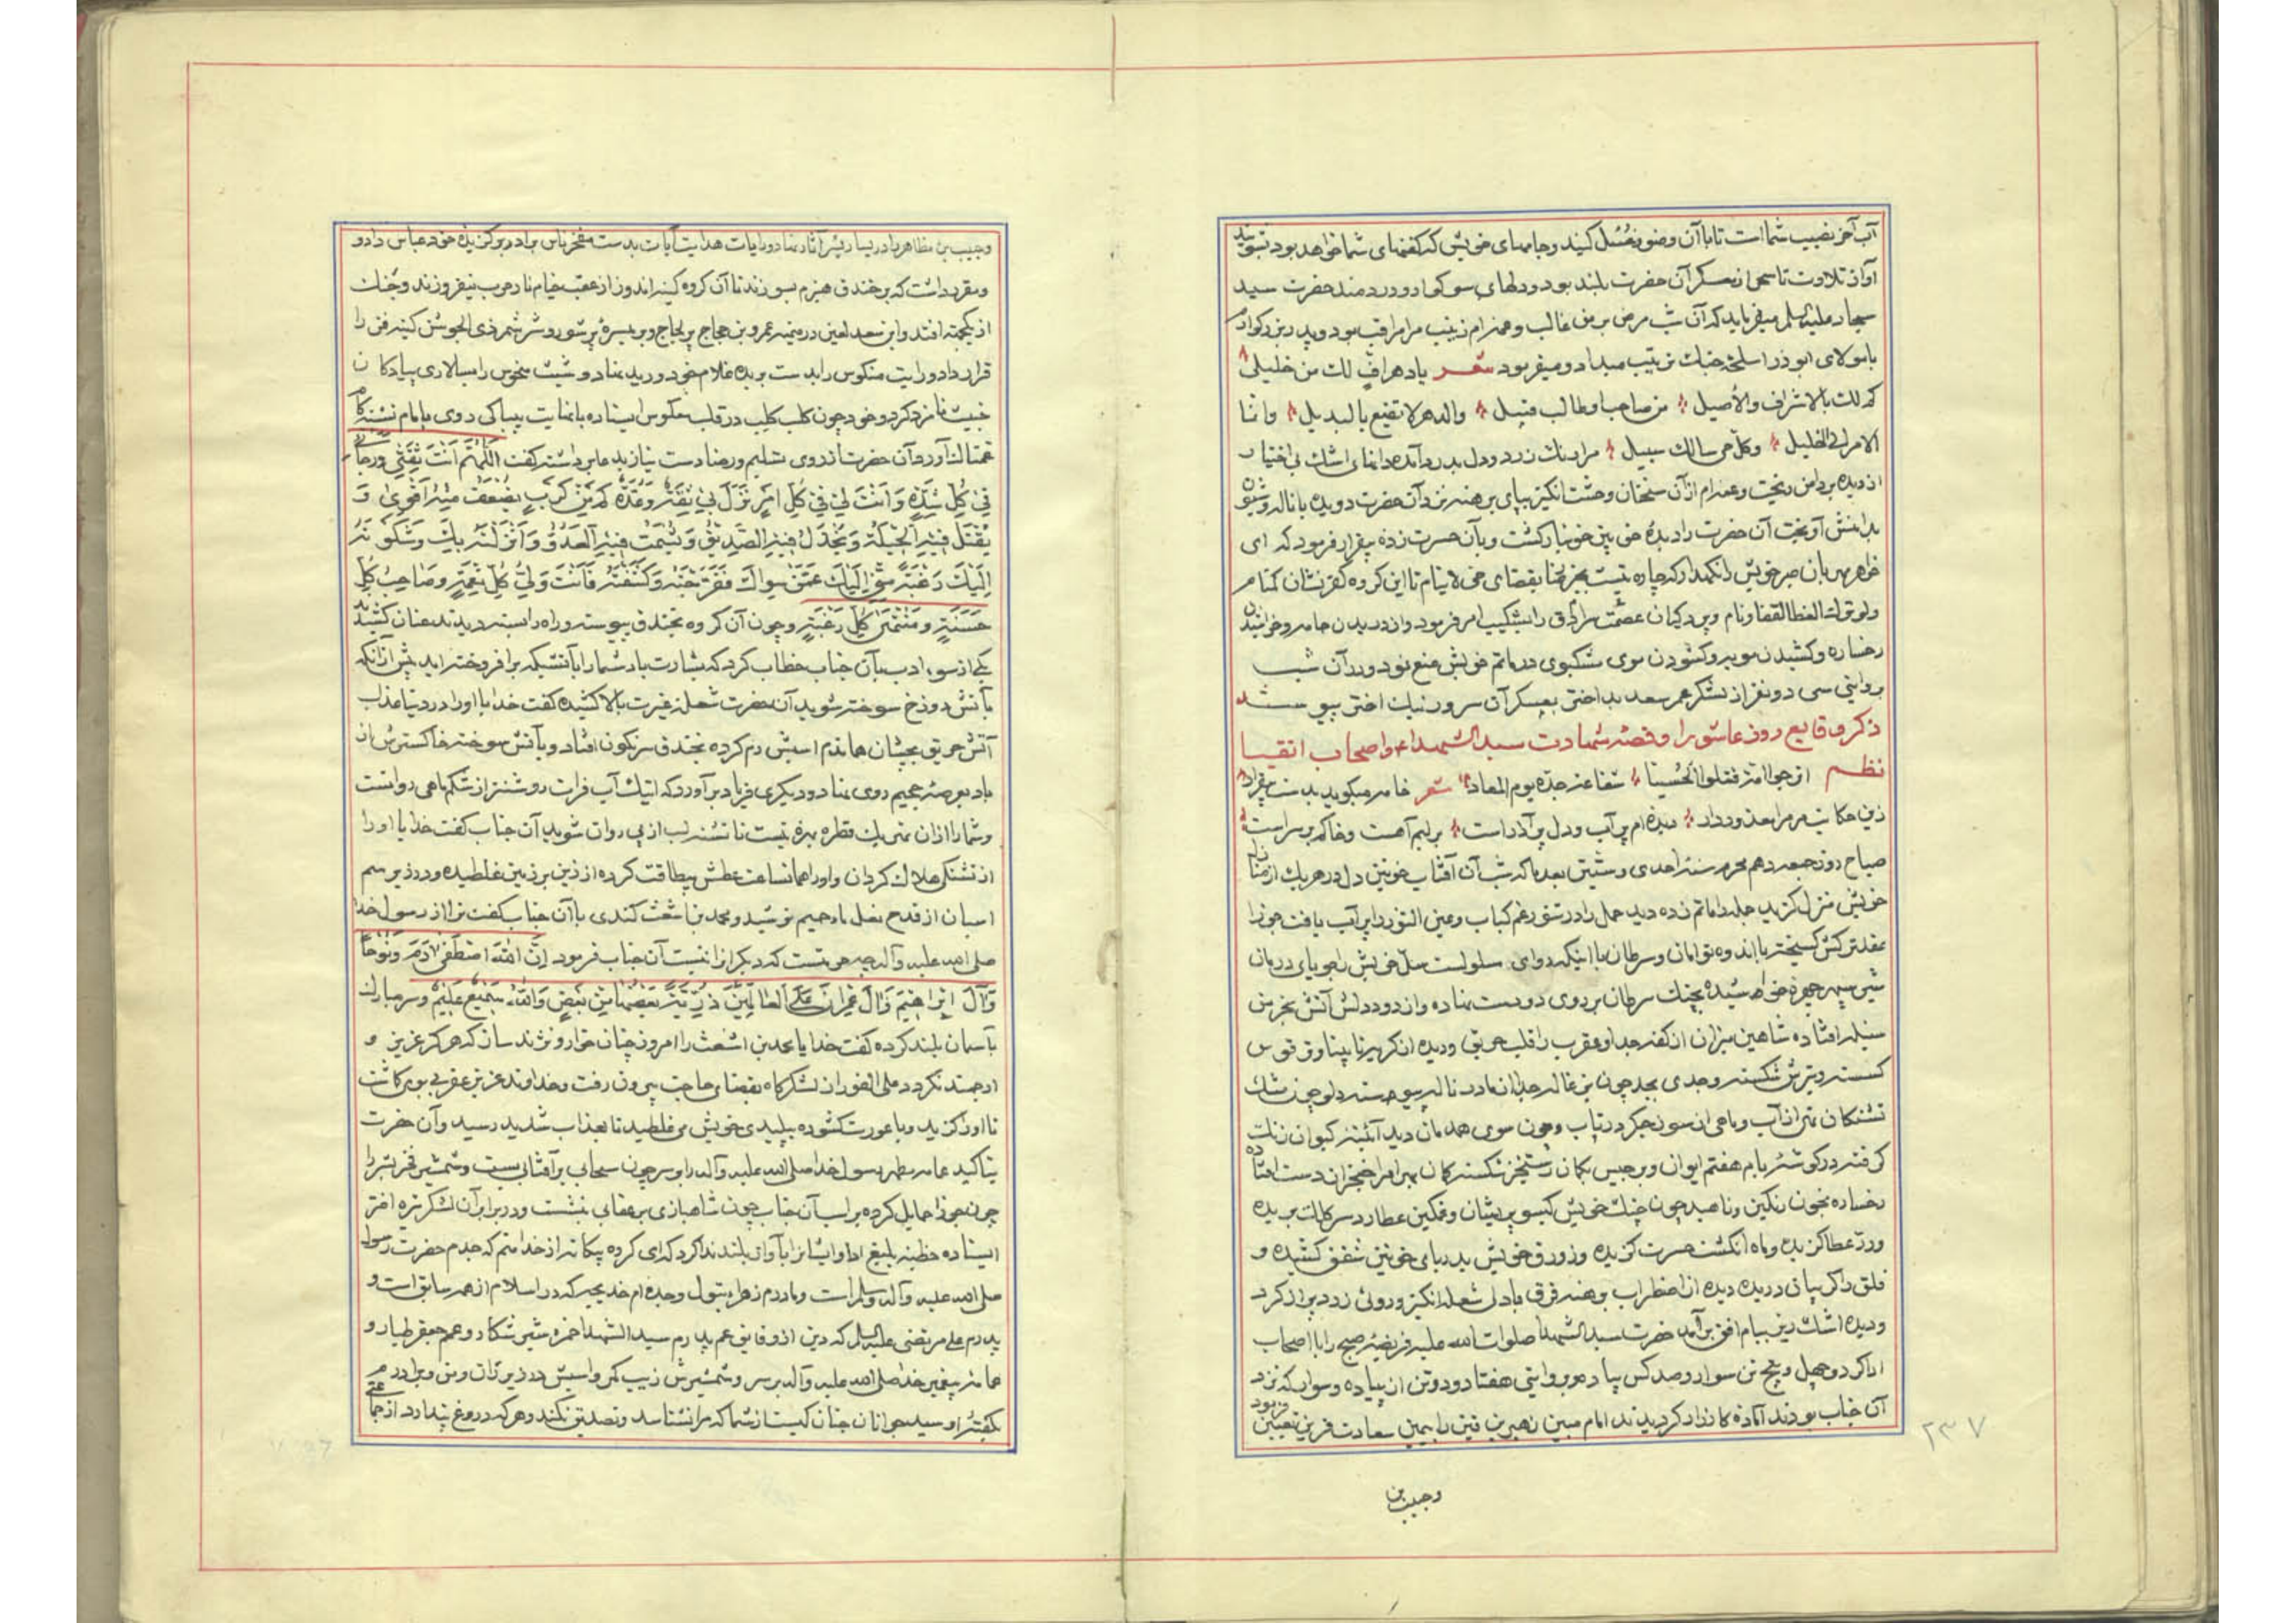 آب آخر نصیب شما است تا با آن وضو و غسل کنید و جامهای خویش که کفنهای شما خواهد بود بشویید
آواز تلاوت تا سحر از معسکر آن حضرت بلند بود و دلهای سوکوار و دردمند حضرت سید
سجاد علیه السلم میفرماید که آن شب مرض بر من غالب و عمه‌ام زینب مرا مراقب بود و پدر بزرکوارم
با مولای ابوذر اسلحه جنک ترتیب میداد و میفرمود شعر یا دهر اف لک من خلیلی
کم لک بالاشراق والأصیل من صاحب و طالب قتیل والدهر لا یقنع بالبدیل وانما
الامر الی الجلیل وکل حی سالک سبیل مرا رنک زرد و دل بدرد آمده دانهای اشک بی اختیار
از دیده بر دامن ریخت و عمه‌ام از آن سخنان وحشت انکیز بپای برهنه نزد آن حضرت دویده با ناله و شیون
بدامنش آویخت آن حضرت را دیده خونین خونبار کشت و بآن حسرت زده بیقرار فرمود که ای
خواهر مهربان صبر خویش را نکهدار که چاره نیست بجز رضا بقضای حی لا ینام تا این کروه کفر نشان
ولو ترک القطا لغفا ونام و پردکیان عصمت سرادق را بشکیب امر فرمود و از دریدن جامه و خراشیدن
رخساره و کشیدن مویه و کشودن موی مشکبوی در ماتم خویش منع نمود و در آن شب
بروایتی سی دو نفر از لشکر عمر سعد بد اختر بعسکر آن سرور نیک اختر پیوستند
ذکر وقایع روز عاشورا و قصه شهادت سید الشهداء و اصحاب اتقیا
نظم اترجوا امة قتلوا الحسینا شفاعة جده یوم المعاد شعر خامه میکوید بدست بیقرار
زین حکایت مر مرا معذور دار دیده‌ام پر آب و دل پر آذر است بر لبم آهست و خاکم بر سر است
صباح روز جمعه دهم محرم سنه احدی و ستین بعد ماه که شب آن آفتاب خونین دل در هر یک از منازل
خویش منزل کزید جمله را ماتم زده دید حمل را در تنور غم کباب و عین الثور را پر آب یافت جوزا
عقد ترکش کسیخته با اندوه توامان و سرطان با اینکه دوای سلولست سل خویش را جویای درمان
شیر سپهر چهره خراشیده بچنک سرطان بر روی دو دست نهاده و از دود دلش آتش بخرمن
سنبله افتاده شاهین میزان از کفه جدا و عقرب را قلب حریق و دیده از کریه نابینا و توز قوس
کسسته و تیرش شکسته و جدی بجد چون بزغاله جدا از مادر ناله پیوسته دلو چون مشک
تشنکان تهی از آب و ماهی از سوز جکر در تاب و چون سوی همدمان دید آئینه کیوان زنک
کرفته در کوشهٔ بام هفتم ایوان و برجیس بکمان رستخیز شکسته کمان بهرام را خنجر از دست افتاده
رخساره بخون رنکین و ناهید چون چنک خویش کیسو پریشان و غمکین عطارد سر کلک بریده
و رد عطا کزیده و ماه انکشت حسرت کزیده و زورق خویش بدریای خونین شفق کشیده و
فلق را کریبانی دریده دیده از اضطراب برهنه فرق با دل شعله انکیز و روئی زرد پر از کرد
و دیده اشک ریز ببام افق برآمد حضرت سید الشهدا صلوات الله علیه فریضه صبح را با اصحاب
ادا کرد و چهل و پنج تن سوار و صد کس پیاده و بروایتی هفتاد و دو تن از پیاده و سوار که نزد
آن جناب بودند آماده کارزار کردیدند امام مبین زهیر بن قین را بیمین سعادت قرین تعیین فرمود
۲۳۷
وحبیب بن
وحبیب بن مظاهر را در یسار یسر آثار نهاد و رایات هدایت آیات بدست مفخر ناس برادر برکزیده خود عباس داد و
و مقرر داشت که بر خندق هیزم بسوزند تا آن کروه کینه اندوز از عقب خیام نار حرب نیفروزند و جنک
از یکجهة افتد و ابن سعد لعین در میمنه عمرو بن حجاج پر لجاج و بر میسره پر شور و شر شمر ذی الجوشن کینه فن را
قرار داد و رایت منکوس را بدست برید غلام خود درید نهاد و شبث منحوس را بسالاری پیادکان
خبیث نامزد کرد و خود چون کلب کلب در قلب معکوس ایستاده با نهایت بیباکی روی بامام تشنه کام
آورد آن حضرت از روی تسلیم و رضا دست نیاز بدعا برداشته کفت اللهم انت ثقتی ورجائی
فی کل شدة وانت لی فی کل امر نزل بی ثقة وعدة کم من کرب یضعف فیه القوی و
یقتل فیه الحیلة ویخذل فیه الصدیق ویشمت فیه العدو وانزلته بک وشکوته
الیک رغبة منی الیک عمن سواک ففرجته وکشفته فانت ولی کل نعمة وصاحب کل
حسنة ومنتهی کل رغبة و چون آن کروه بخندق پیوسته و راه را بسته دیدند عنان کشیدند
یکی از سوء ادب بآن جناب خطاب کرد که بشارت باد شما را بآتشیکه برافروخته‌اید پیش از آنکه
بآتش دوزخ سوخته شوید آن حضرت شعله غیرت بالا کشیده کفت خدایا او را در دنیا عذاب
آتش حریق بچشان هماندم اسبش رم کرده بخندق سرنکون افتاد و بآتش سوخته خاکسترش از
باد بعرصه جحیم روی نهاد و دیکری فریاد برآورد که اینک آب فرات روشنتر از شکم ماهی روانست
و شما را از آن نمی یک قطره بهره نیست تا تشنه لب از پی روان شوید آن جناب کفت خدایا او را
از تشنکی هلاک کردان و او را همان ساعت عطش بیطاقت کرده از زین بر زمین غلطیده و در زیر سم
اسبان از قدح نعل ماء حمیم نوشید و محمد بن اشعث کندی با آن جناب کفت ترا از رسول خدا
صلی الله علیه وآله چه حرمتست که دیکر انرا نیست آن جناب فرمود إن الله اصطفی آدم ونوحا
وآل ابراهیم وآل عمران علی العالمین ذریة بعضها من بعض والله سمیع علیم و سر مبارک
بآسمان بلند کرده کفت خدایا محمد بن اشعث را امروز چنان خوار و نژند ساز که هرکز عزیز و
ارجمند نکردد علی الفور از لشکرکاه بقضای حاجت بیرون رفت و خداوند عزیز عقربی بر وی کماشت
تا او را کزید و با عورت کشوده بپلیدی خویش می غلطید تا بعذاب شدید رسید و آن حضرت
عمامه مطهر رسول خدا صلی الله علیه وآله را بر سر چون سحابی بر آفتابی بست و شمشیر را
چون جوزا حمایل کرده بر اسب آن جناب چون شاهبازی بر عقابی نشست و در برابر آن لشکر تیره اختر
ایستاده خطبه بلیغ ادا و ایشانرا بآواز بلند ندا کرد که ای کروه بیکانه از خدا منم که جدم حضرت رسول
صلی الله علیه وآله وسلم است و مادرم زهراء بتول و جده‌ام خدیجه که در اسلام از همه سابق است و
پدرم علی مرتضی علیه السلم که دین از او قایم عم پدرم سید الشهدا حمزه شیر شکار و عمم جعفر طیار و
عمامه پیغمبر خدا صلی الله علیه وآله بر سر و شمشیرش زیب کمر و اسبش در زیر ران و من و برادرم
بکفتهٔ او سید جوانان جنان کیست از شما که مرا نشناسد و تصدیق نکند و هر که دروغ پندارد از جماعتی